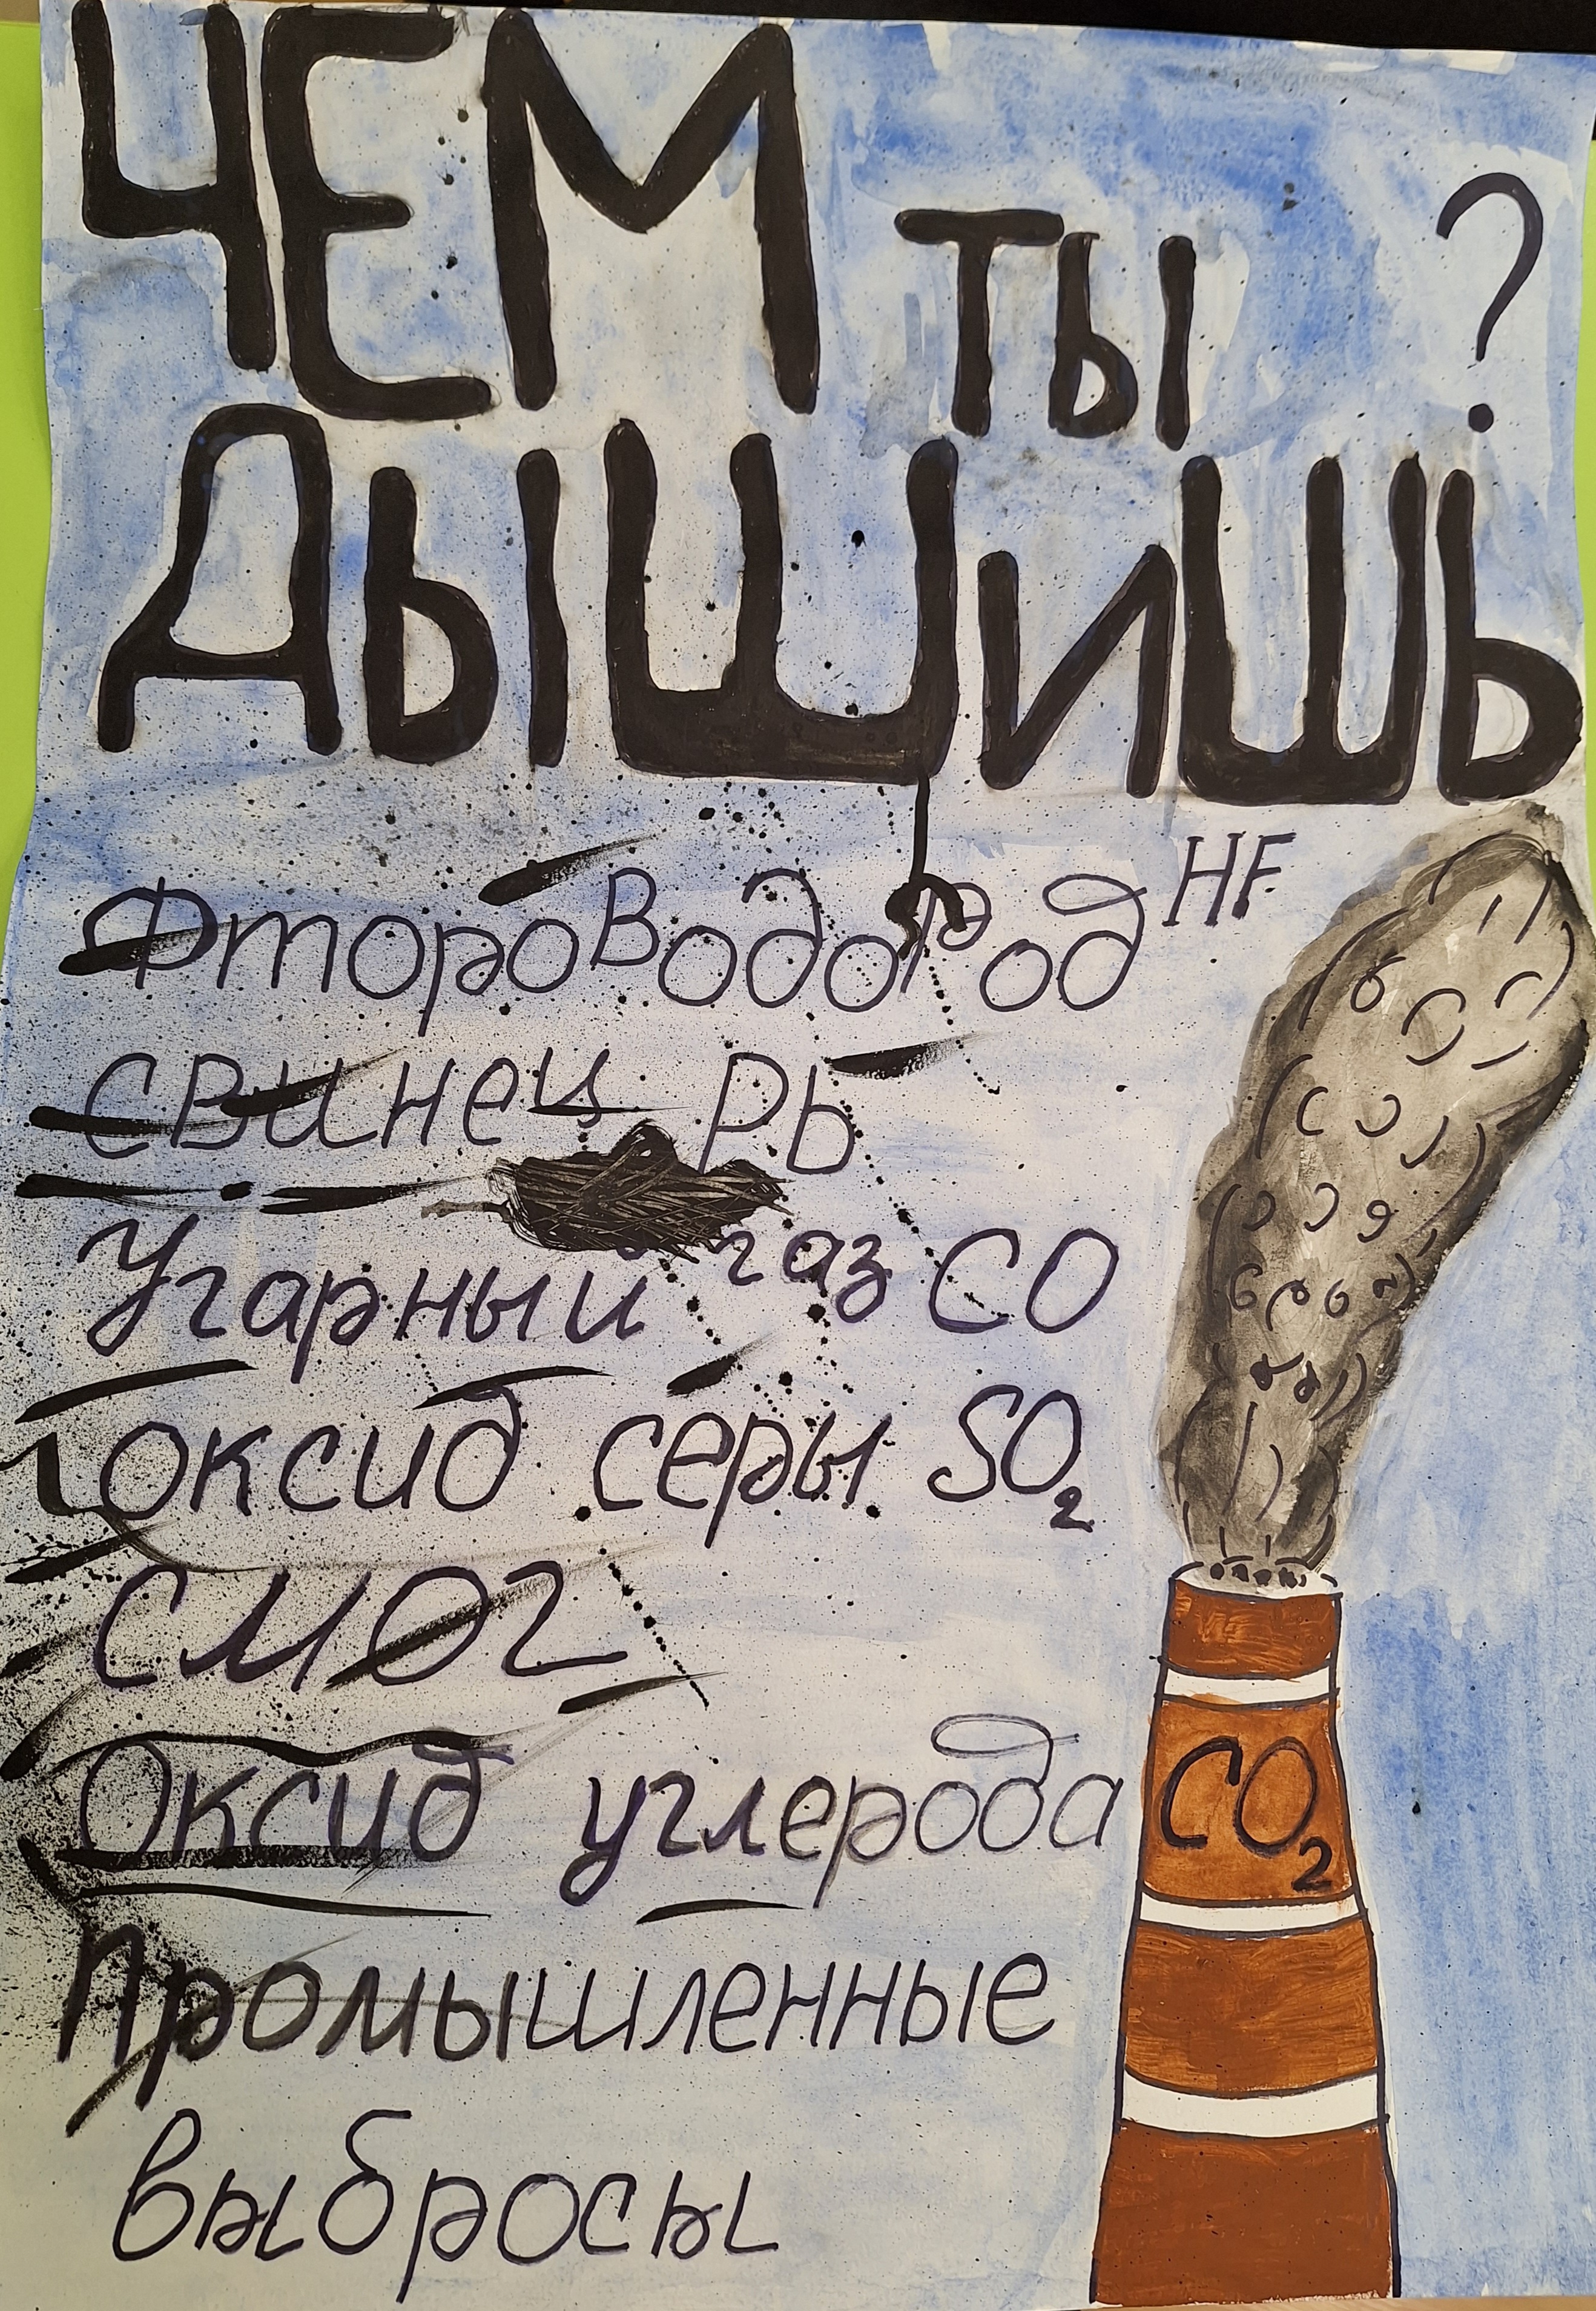 ЧЕМ ты ?
ДЫШИШЬ
Фтороводород HF
свинец Pb
Угарный газ CO
оксид серы SO₂
смог
Оксид углерода CO₂
Промышленные
выбросы